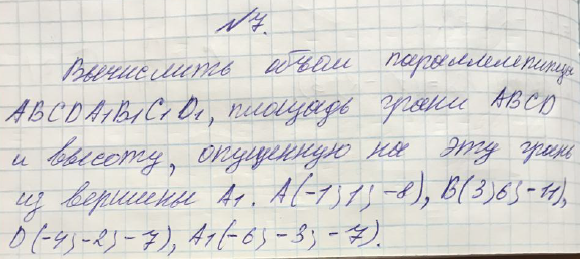 №7.
Вычислить объем параллелепипеда
ABCDA1B1C1D1, площадь грани ABCD
и высоту, опущенную на эту грань
из вершины A1. A(-1; 1; -8), B(3; 6; -11),
D(-4; -2; -7), A1(-6; -3; -7).